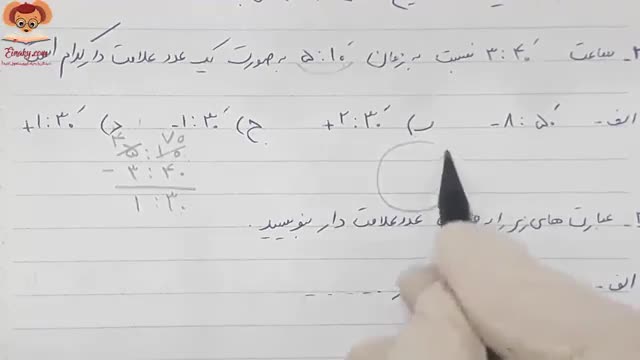 Einaky.com
۳- ساعت ۳:۴۰′ نسبت به زمان ۵:۱۰′ به صورت یک عدد علامت دار کدام است
الف- -۸:۵۰′ ب) +۲:۳۰′ ج) -۱:۳۰′ د) +۱:۳۰′
۴ ۷۰
۵:۱۰
- ۳:۴۰
۱:۳۰
عبارت های زیر را عدد علامت دار بنویسید.
الف-